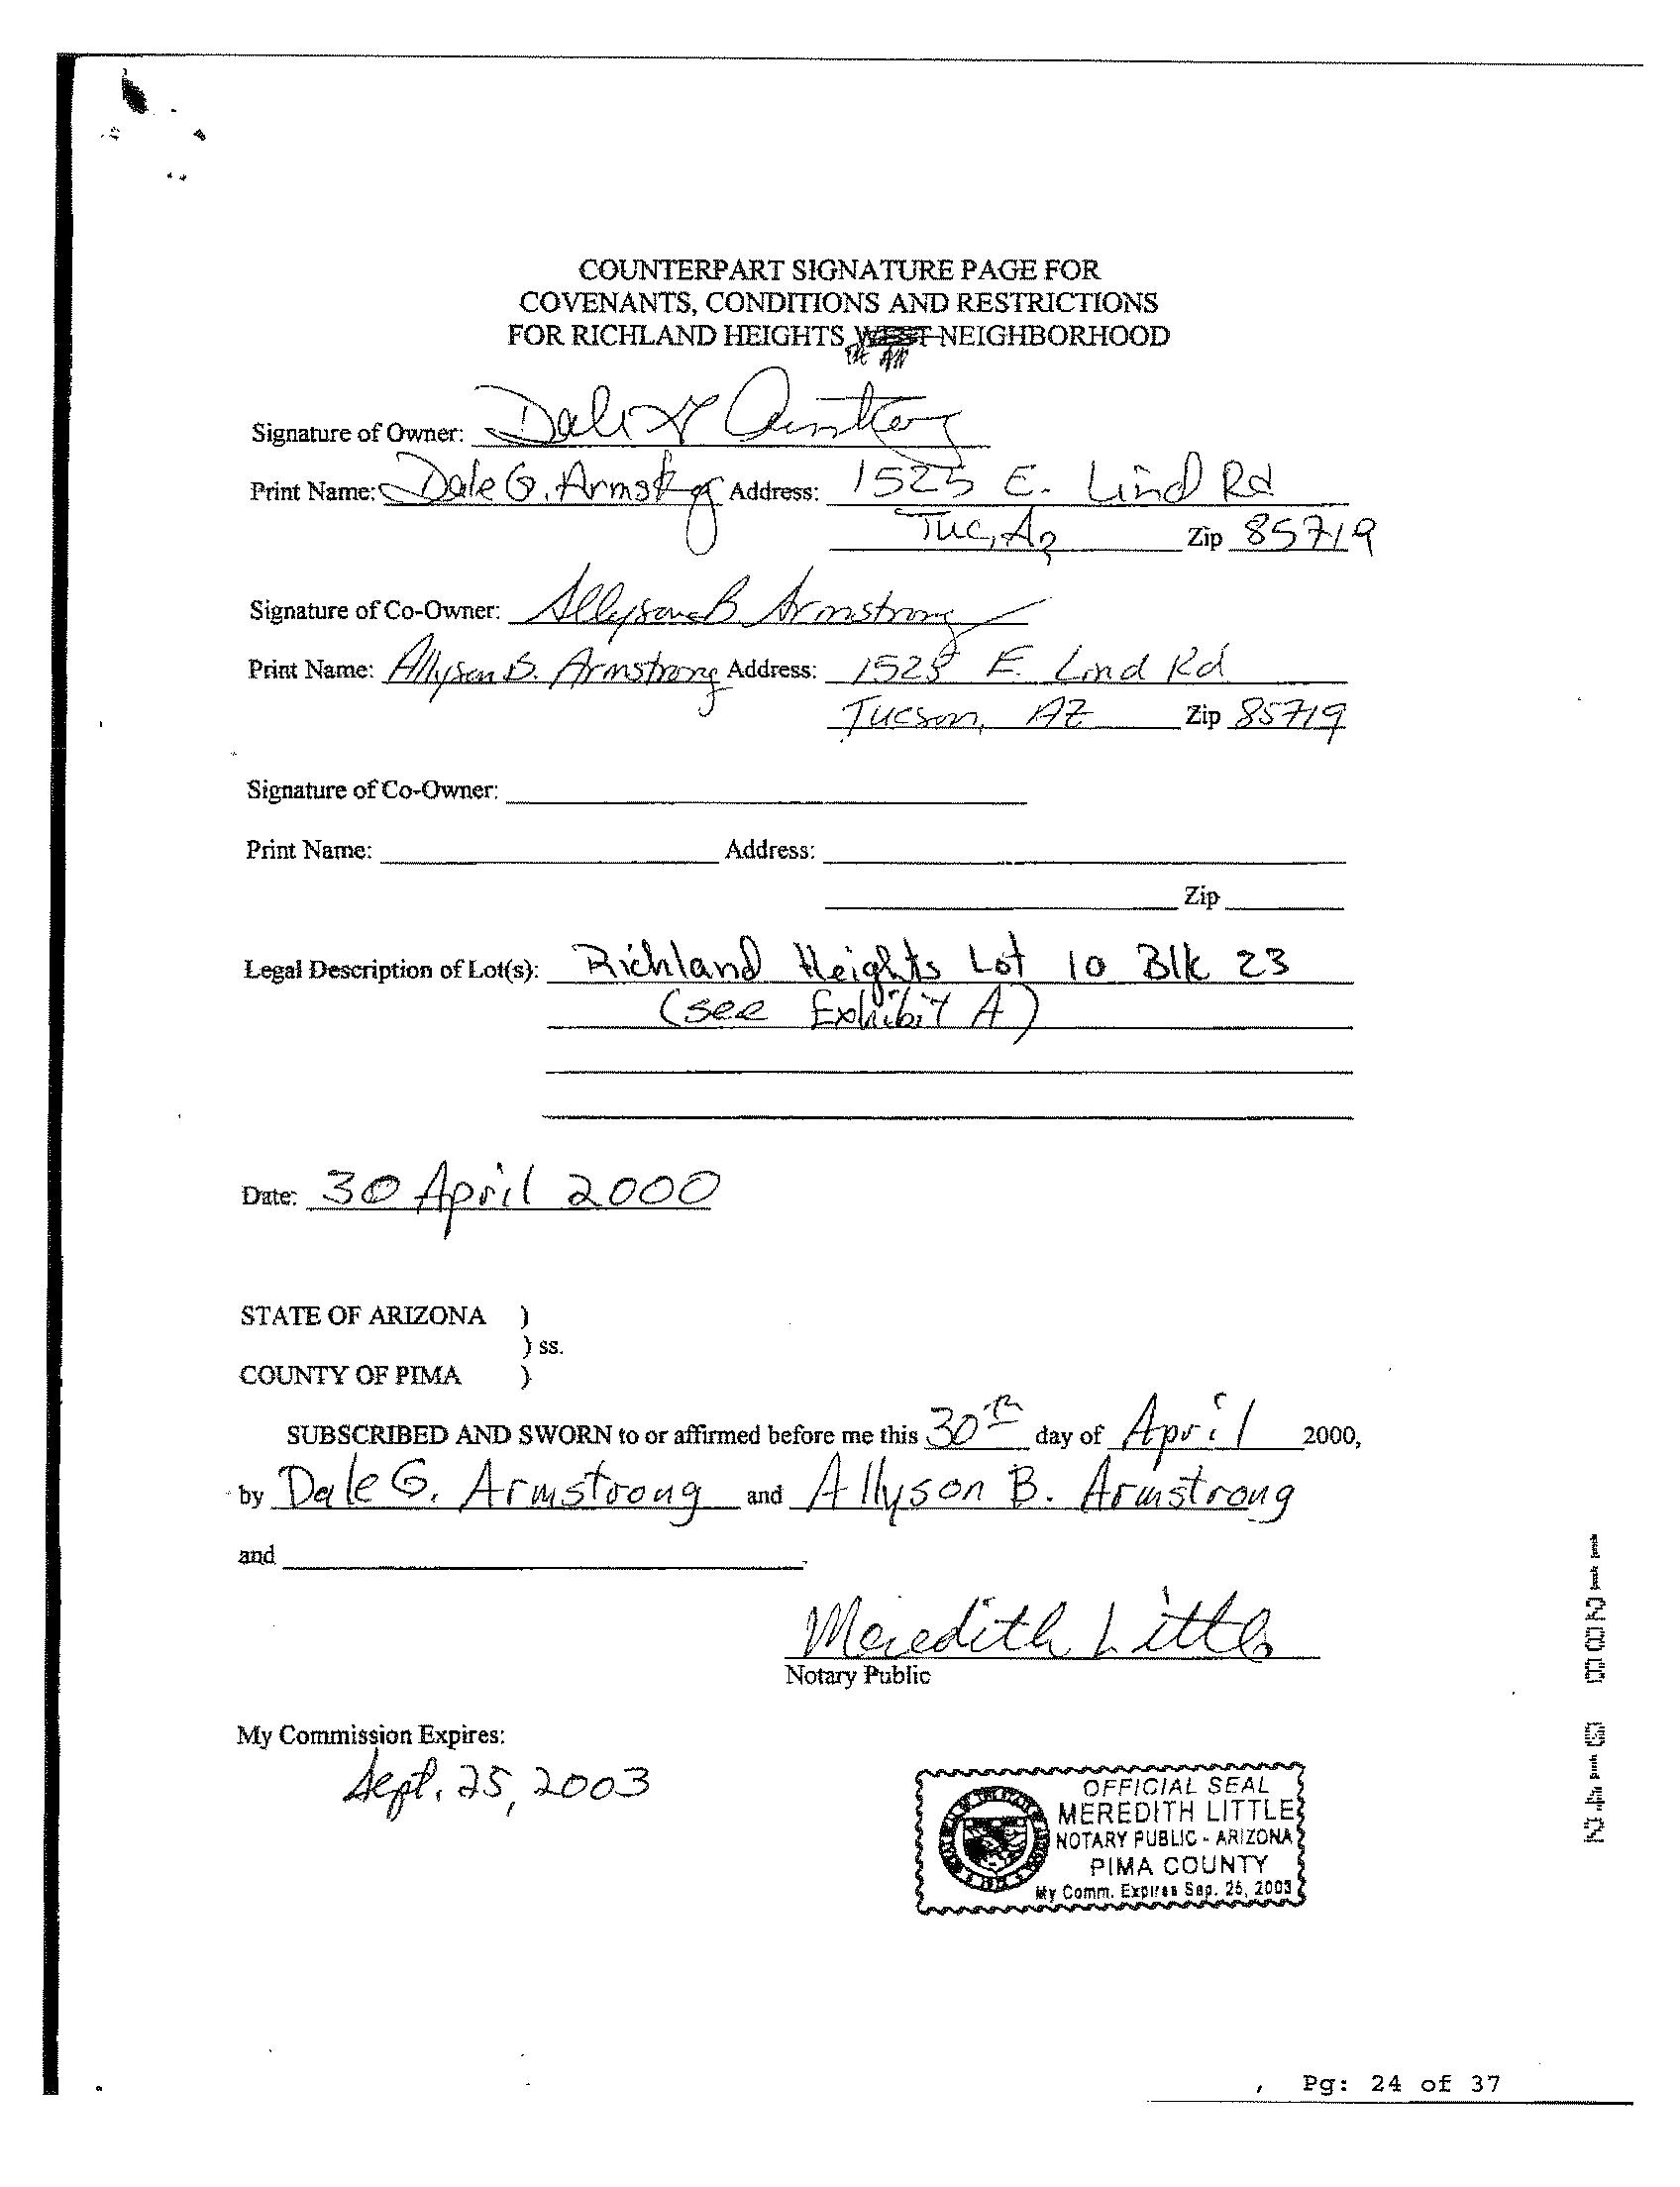 COUNTERPART SIGNATURE PAGE FOR
COVENANTS, CONDITIONS AND RESTRICTIONS
FOR RICHLAND HEIGHTS WEST NEIGHBORHOOD
Signature of Owner: Dale G Armstrong
Print Name: Dale G. Armstrong Address: 1525 E. Lind Rd
Tuc, Az Zip 85719
Signature of Co-Owner: Allyson B Armstrong
Print Name: Allyson B. Armstrong Address: 1525 E. Lind Rd
Tucson, AZ Zip 85719
Signature of Co-Owner:
Print Name: Address:
Zip
Legal Description of Lot(s): Richland Heights Lot 10 Blk 23
(see Exhibit A)
Date: 30 April 2000
STATE OF ARIZONA )
) ss.
COUNTY OF PIMA )
SUBSCRIBED AND SWORN to or affirmed before me this 30th day of April 2000,
by Dale G. Armstrong and Allyson B. Armstrong
and
Meredith Little
Notary Public
My Commission Expires:
Sept. 25, 2003
OFFICIAL SEAL
MEREDITH LITTLE
NOTARY PUBLIC - ARIZONA
PIMA COUNTY
My Comm. Expires Sep. 25, 2003
Pg: 24 of 37